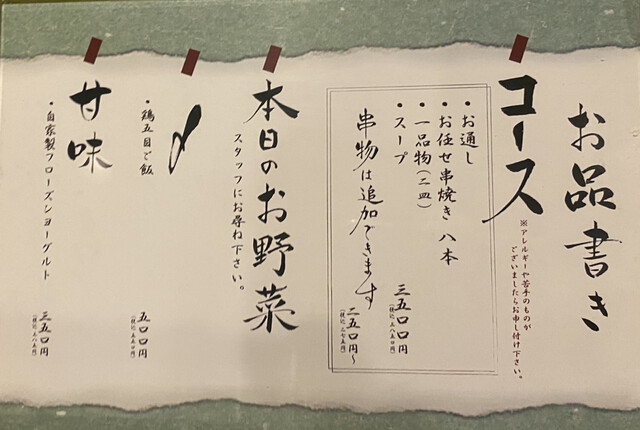 お品書き
コース
※アレルギーや苦手のものが
ございましたらお申し付け下さい。
• お通し
• お任せ串焼き 八本
• 一品物(二皿)
• スープ
三五〇〇円
(税込 三八五〇円)
串物は追加できます
二五〇円〜
(税込 二七五円)
本日のお野菜
スタッフにお尋ね下さい。
〆
• 鶏五目ご飯
五〇〇円
(税込 五五〇円)
甘味
• 自家製フローズンヨーグルト
三五〇円
(税込 三八五円)